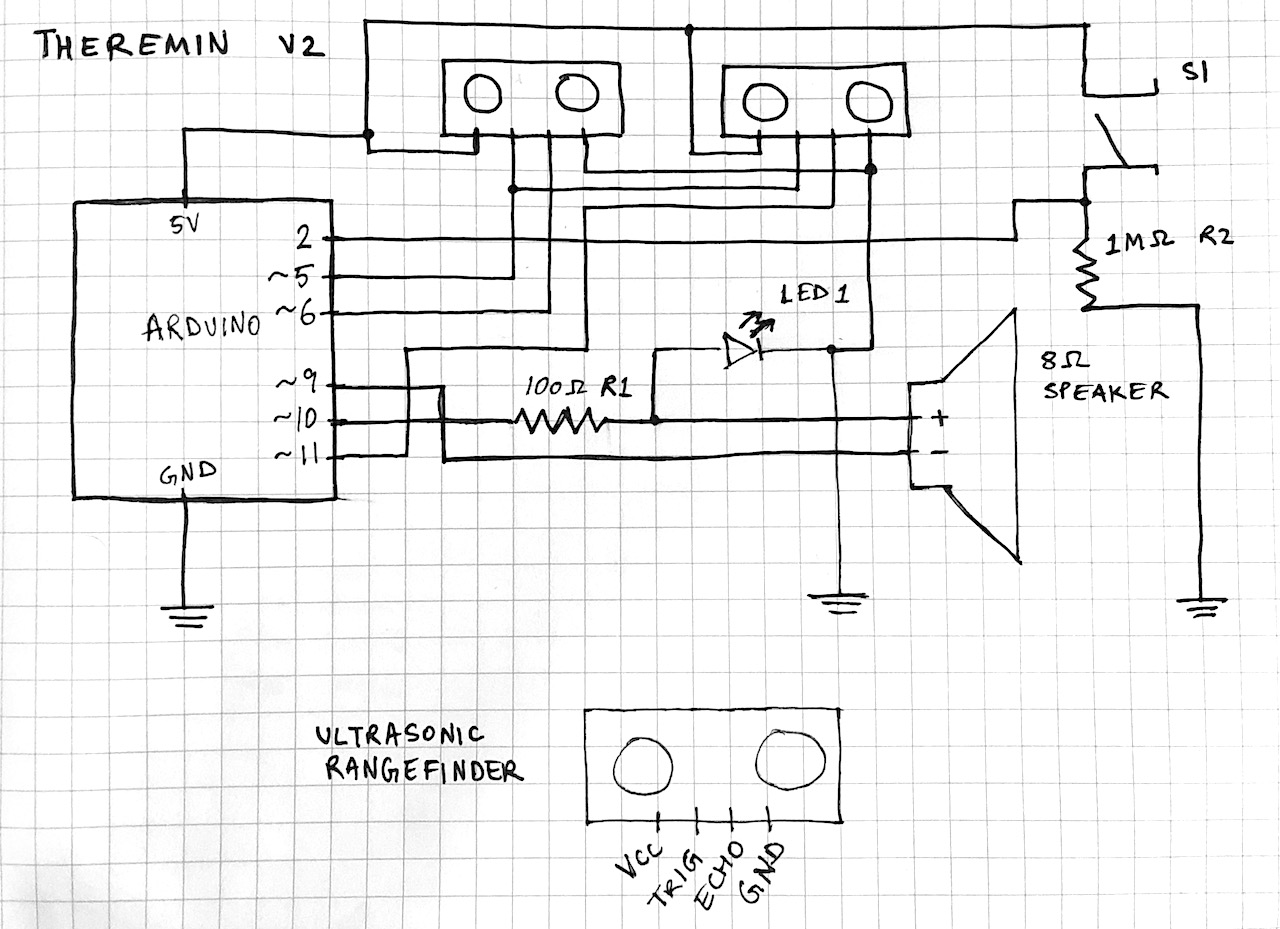 THEREMIN V2
S1
5V
2
~5
~6
ARDUINO
~9
~10
~11
GND
LED1
1MΩ R2
100Ω R1
8Ω
SPEAKER
+
-
ULTRASONIC
RANGEFINDER
VCC
TRIG
ECHO
GND